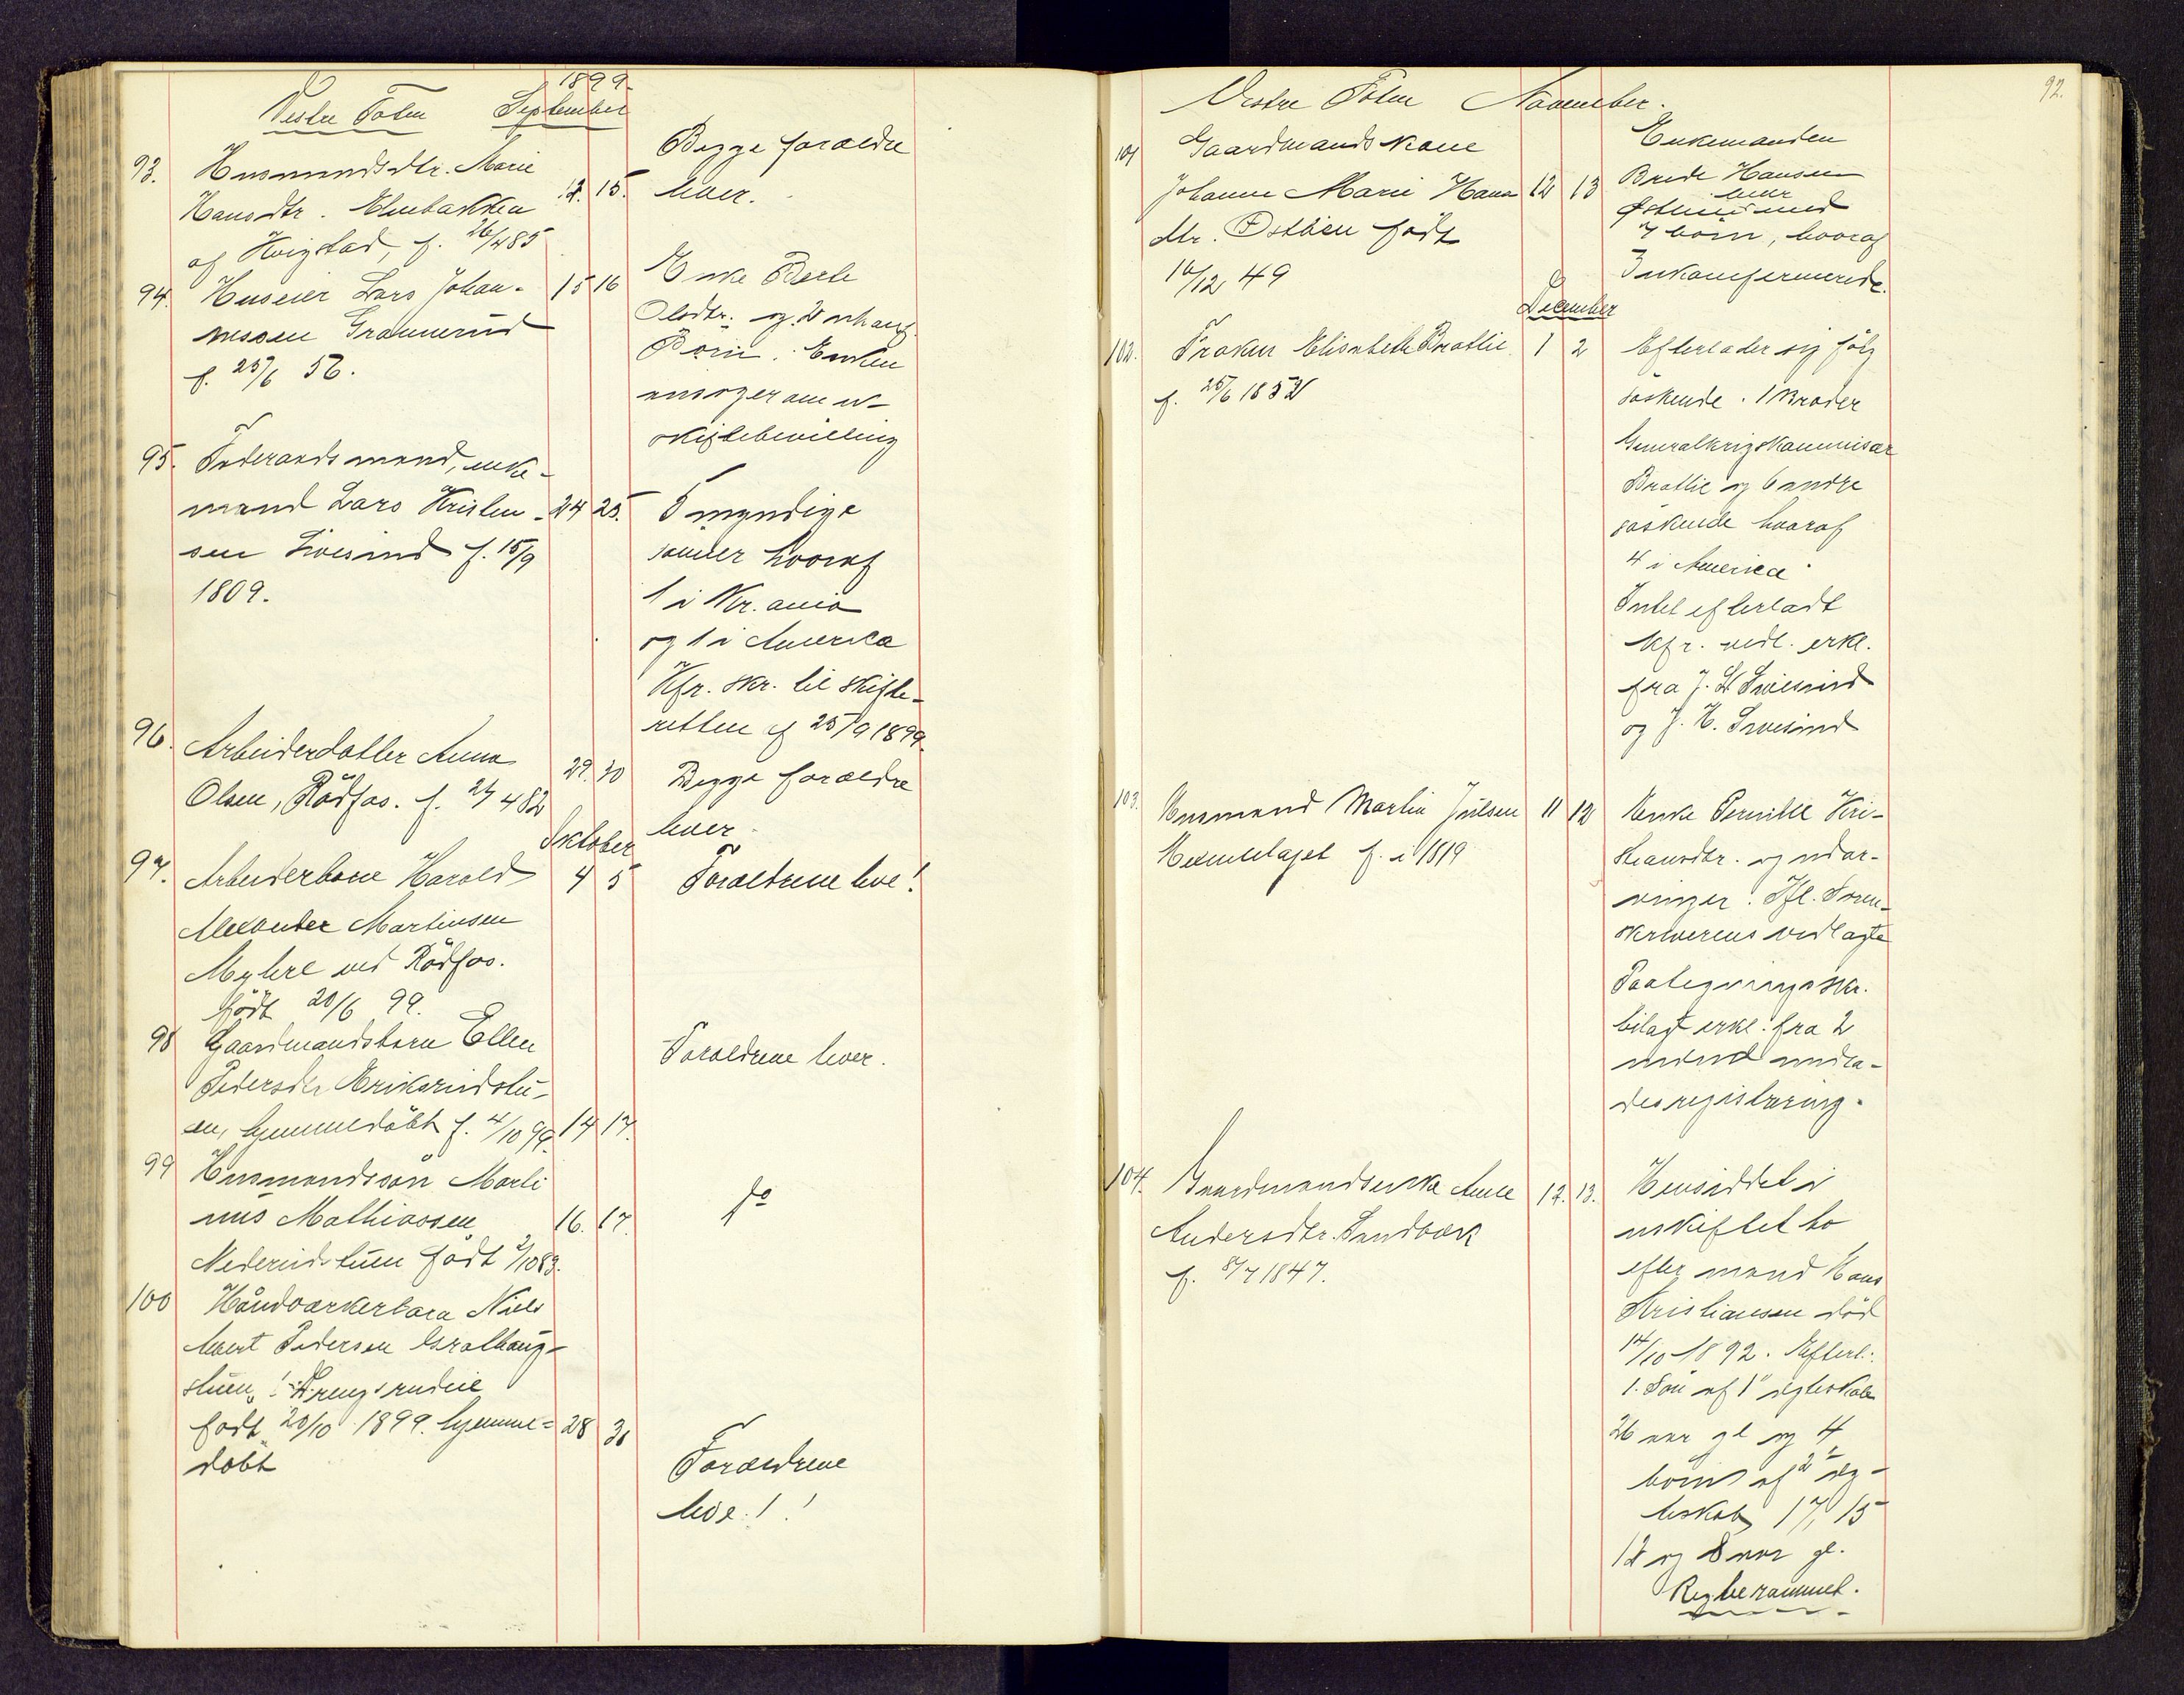 1899.
Vestre Toten September
93. Husmandsdtr. Marie
Hansdtr. Elnebakken 12. 15.
af Hvigstad, f. 26/4 85
Begge forældre
lever.
94. Huseier Lars Johan- 15 16
nessen Grannerud
f. 25/6 56.
Enke Berte
Olsdtr. og
Børn. Enken
ansøger om u-
skiftebevilling
95. Føderaadsmand, enke-
mand Lars Kristen- 24 25.
sen Sivesind f. 15/9
1809.
5 myndige
sønner hvoraf
1 i Kr.ania
og 1 i Amerika
Kfr. skr. til skifte-
retten af 25/9 1899
96. Arbeiderdatter Anna 29. 30
Olsen, Rødfos. f. 24/4 82
Begge forældre
lever.
Oktober
97. Arbeiderbarn Harald 4 5
Alexander Martinsen
Myhre ved Rødfos.
født 20/6 99.
Forældrene leve!
98 Gaardmandsbarn Ellen
Pedersdtr Eriksrudstu-
en, hjemmedøbt f. 4/10 99. 14 17.
Forældrene lever.
99 Husmandssøn Marti
nus Mathiassen 16. 17.
Nederudstuen født 2/10 83.
do
100 Håndværkerbarn Niels
Albert Pedersen
stuen,
født 20/10 1899. hjemme= 28 30
døbt
Forældrene
leve!!
92.
Vestre Toten November.
101 Gaardmandskone
Johanne Marie Hans 12 13
dtr. Østbien født
16/12 49
Enkemanden
Brede Hansen
lever
med
7 børn, hvoraf
3 ukonfirmerede.
December
102. Frøken Elisabeth Bratlie 1 2
f. 25/6 1832
Efterlader sig følg
søskende. 1 Broder
Generalkrigskommisær
Bratlie og 6 andre
søskende hvoraf
4 i America
Intet efterladt
kfr. vedl. erkl.
fra J. Sivesind
og J. H. Sivesind
103. Husmand Martin Julsen 11 12
Hexumelaget f. i 1819
Enke Pernille Kri-
stiansdtr. og udar-
vinger. Ifl. Soren-
skriverens vedlagte
Paategningsskr.
bilagt erkl. fra 2
mænd undla-
des registrering.
104. Gaardmandsenke Anne 12. 13.
Andersdtr. Sandbæk
f. 8/7 1847.
Hensiddet i
uskiftet bo
efter mand Hans
Kristiansen død
14/10 1892. Efterl:
1. Søn af 1ste ægteskab
26 aar gl og 4
børn af 2det æg-
teskab 17, 15
12 og 8 aar gl.
Reg berammet.